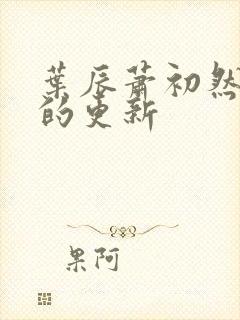 葉辰蕭初然
的更新
果阿